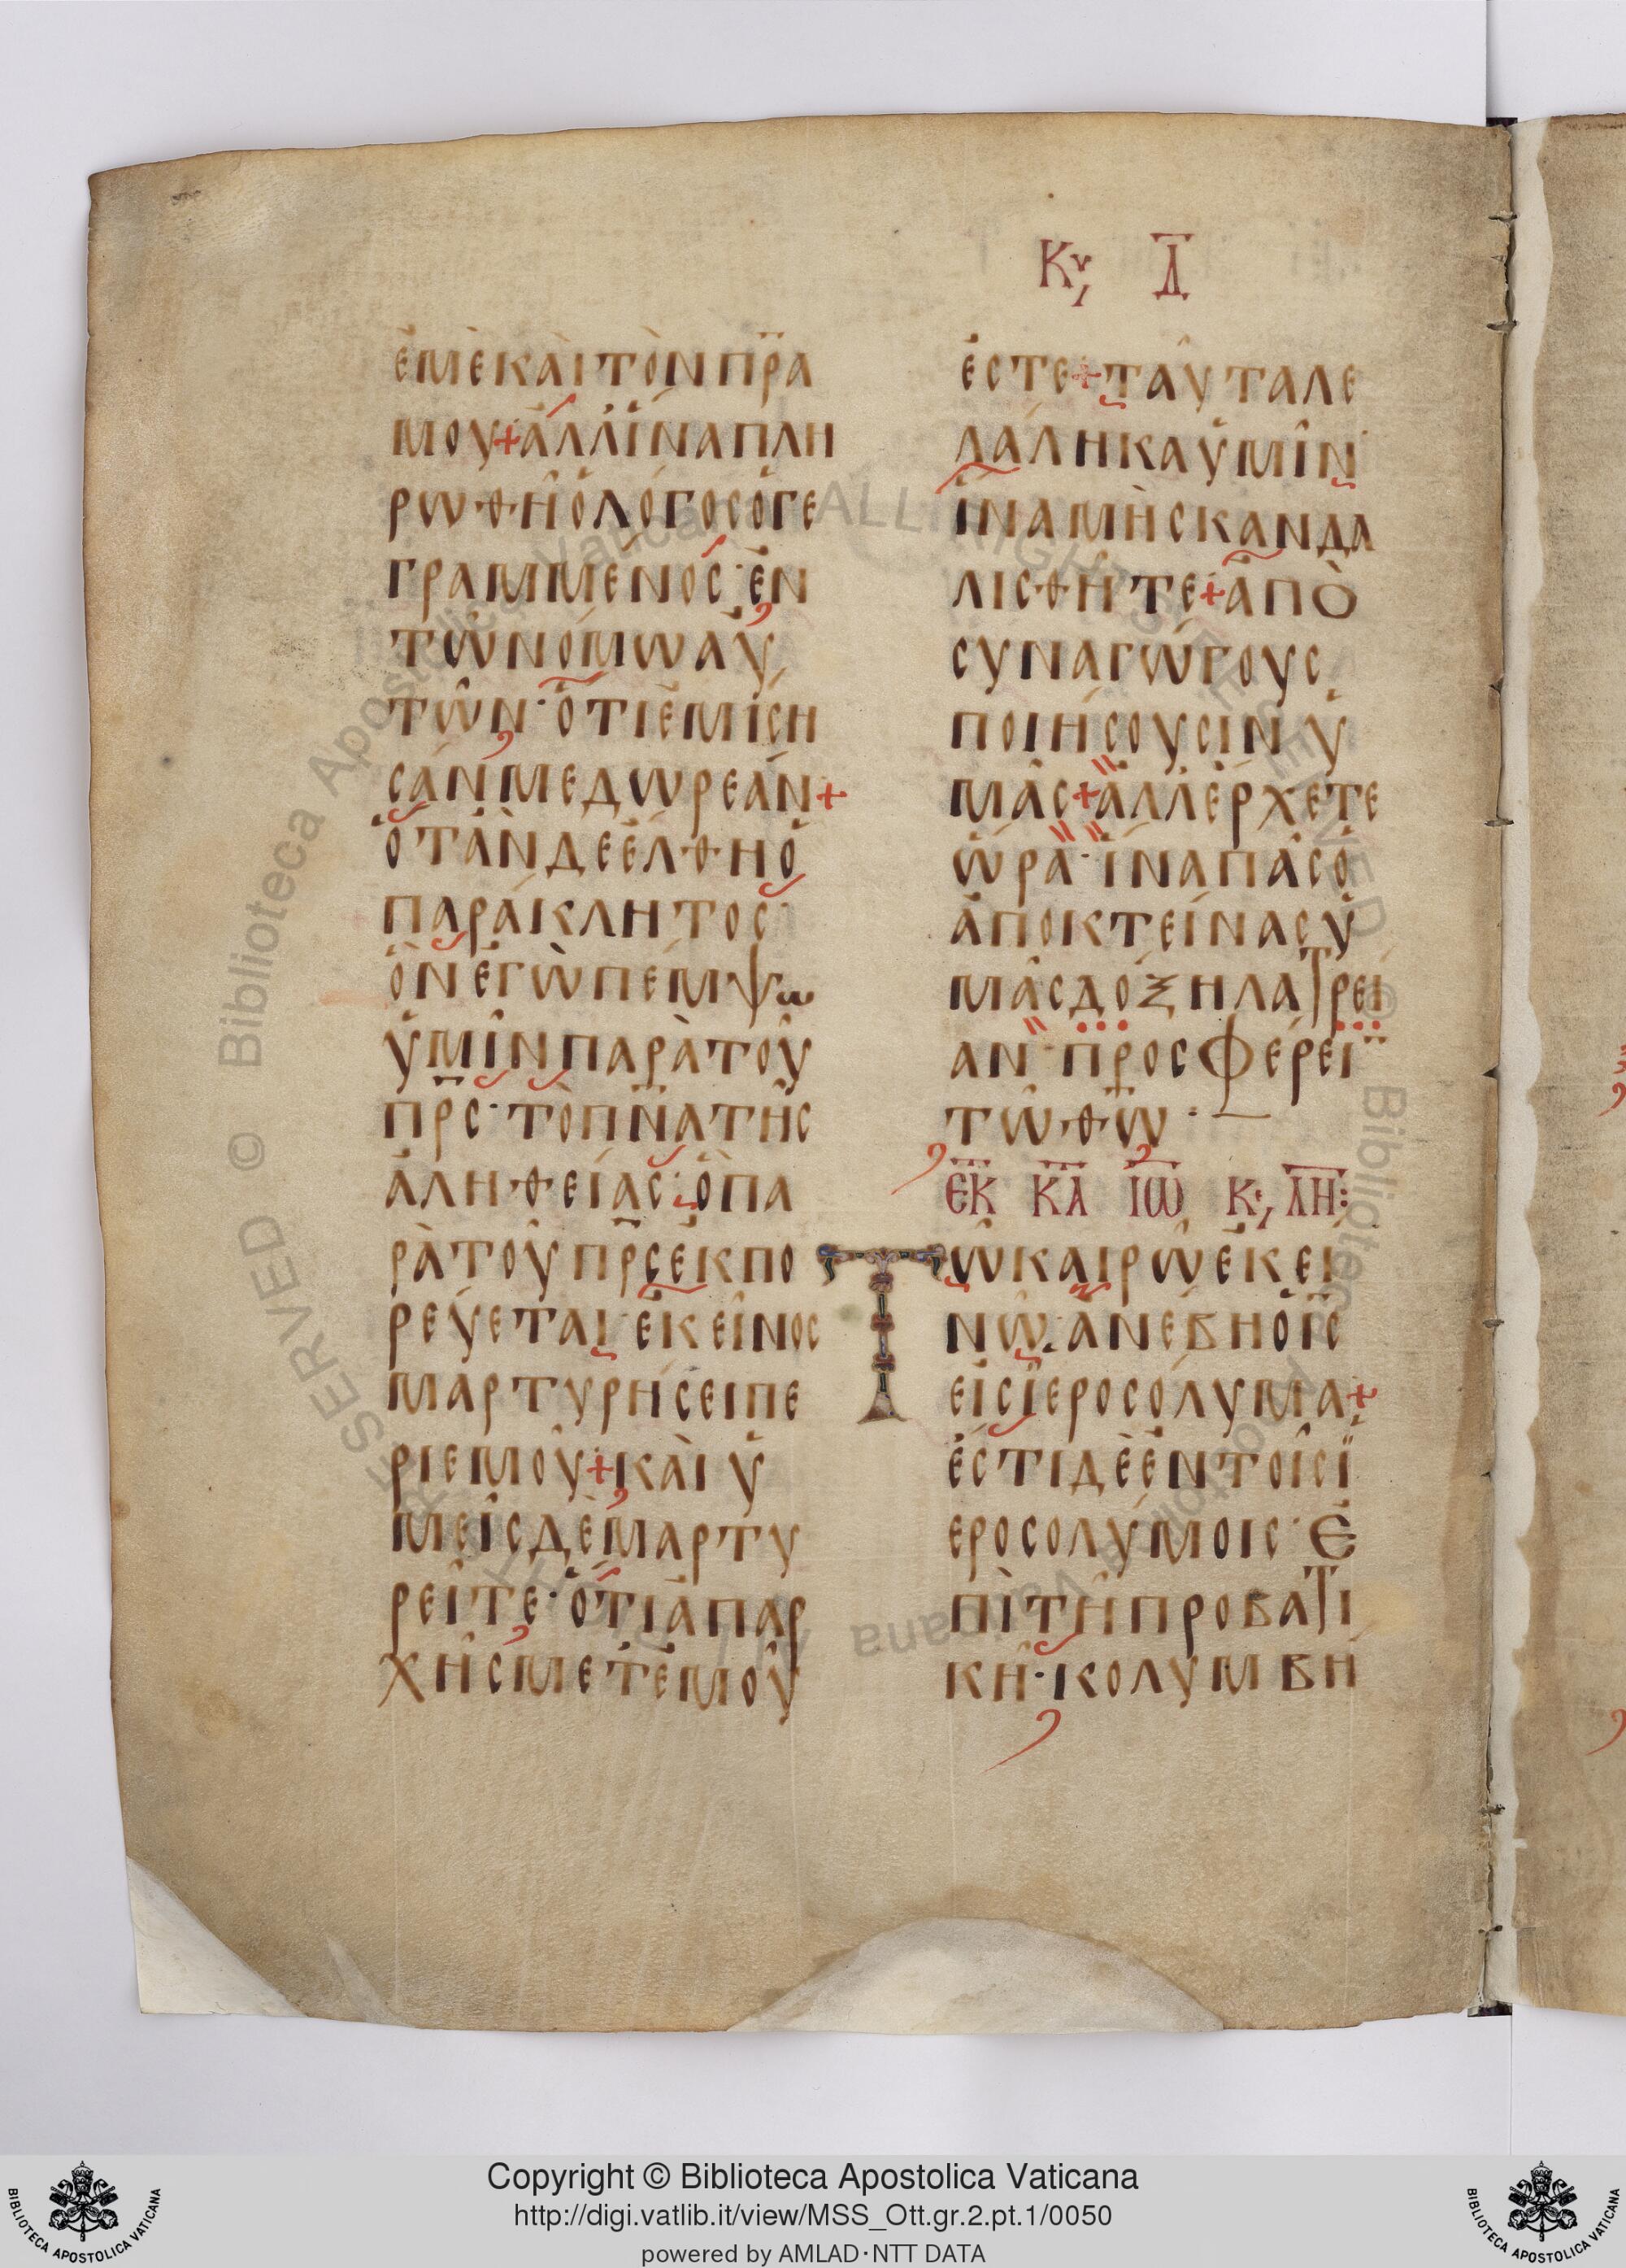 Κυ, Δ
ἐμὲ καὶ τὸν πρ̅α
μου + ἀλλ' ἵνα πλη
ρωθῆ ὁ λόγος ὁ γε
γραμμένος · ἐν
τῶ νόμω αὐ
τῶν · ὅτι ἐμίσι
σάν με δωρεάν +
ὅταν δὲ ἔλθη ὁ
παράκλητος ·
ὃν ἐγὼ πέμψω
ὑμῖν παρὰ τοῦ
πρ̅ς · τὸ πν̅α τῆς
ἀληθείας · ὃ πα
ρὰ τοῦ πρ̅ς ἐκπο
ρεύεται · ἐκεῖνος
μαρτυρήσει πε
ρὶ ἐμοῦ + καὶ ὑ
μεῖς δὲ μαρτυ
ρεῖτε · ὅτι ἀπ' ἀρ
χῆς μετ' ἐμοῦ
ἐστε + ταῦτα λε
λάληκα ὑμῖν ·
ἵνα μὴ σκανδα
λισθῆτε + ἀπο
συναγώγους
ποιήσουσιν ὑ
μᾶς + ἀλλ' ἔρχετε
ὥρα · ἵνα πᾶς ὁ
ἀποκτείνας ὑ
μᾶς δόξη λατρεί
αν · προσφέρει
τῶ θ̅ω ·
ἐκ κ̅α̅ ἰ̅ω̅ κε, λ̅η̅ :
Τῶ καιρῶ ἐκεί
νω · ἀνέβη ὁ ι̅ς̅
εἰς ἱεροσόλυμα +
ἔστι δὲ ἐν τοῖς ἱ
εροσολύμοις · ἐ
πὶ τῆ προβατι
κῆ · κολυμβή
RESERVED © Biblioteca Apostolica Vaticana ALL RIGHTS RESERVED © Biblioteca Apostolica Vaticana
BIBLIOTECA APOSTOLICA VATICANA
Copyright © Biblioteca Apostolica Vaticana
http://digi.vatlib.it/view/MSS_Ott.gr.2.pt.1/0050
powered by AMLAD·NTT DATA
BIBLIOTECA APOSTOLICA VATICANA